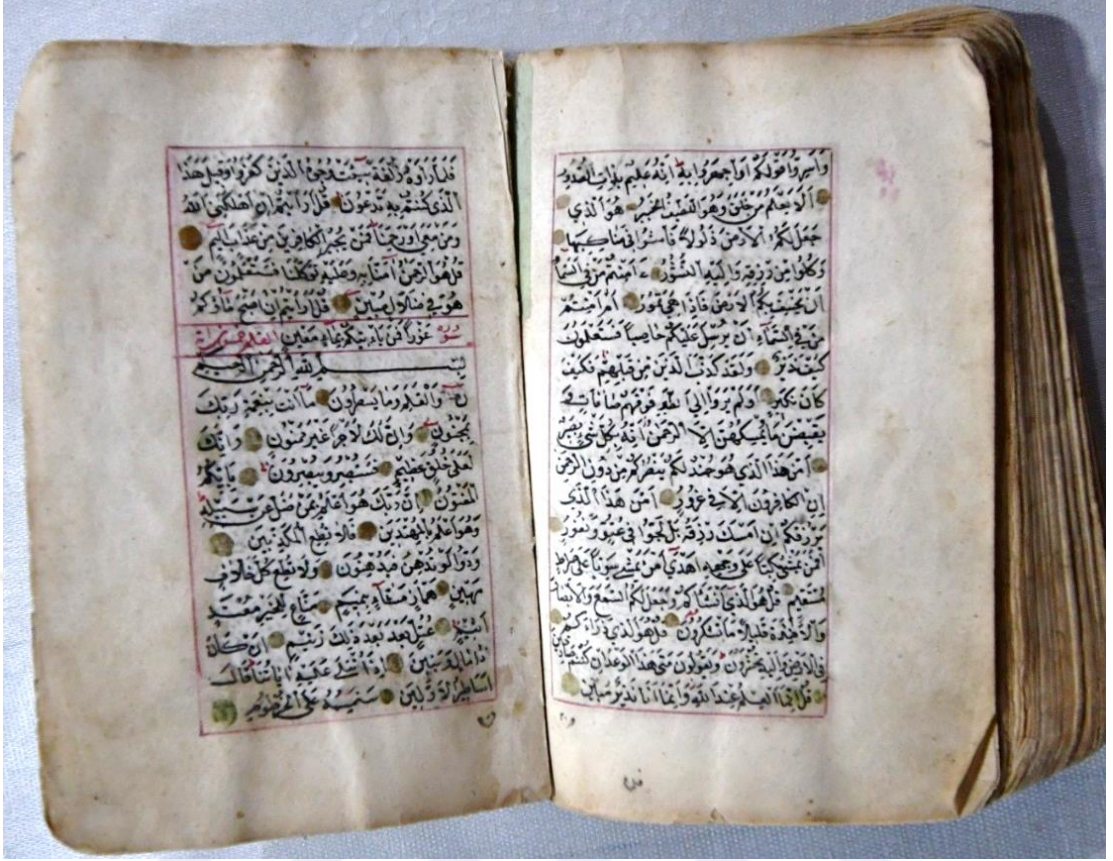 وَأَسِرُّوا قَوْلَكُمْ أَوِ اجْهَرُوا بِهِ إِنَّهُ عَلِيمٌ بِذَاتِ الصُّدُورِ
أَلَا يَعْلَمُ مَنْ خَلَقَ وَهُوَ اللَّطِيفُ الْخَبِيرُ هُوَ الَّذِي
جَعَلَ لَكُمُ الْأَرْضَ ذَلُولًا فَامْشُوا فِي مَنَاكِبِهَا
وَكُلُوا مِنْ رِزْقِهِ وَإِلَيْهِ النُّشُورُ ءَأَمِنْتُمْ مَنْ فِي السَّمَاءِ
أَنْ يَخْسِفَ بِكُمُ الْأَرْضَ فَإِذَا هِيَ تَمُورُ أَمْ أَمِنْتُمْ
مَنْ فِي السَّمَاءِ أَنْ يُرْسِلَ عَلَيْكُمْ حَاصِبًا فَسَتَعْلَمُونَ
كَيْفَ نَذِيرِ وَلَقَدْ كَذَّبَ الَّذِينَ مِنْ قَبْلِهِمْ فَكَيْفَ
كَانَ نَكِيرِ أَوَلَمْ يَرَوْا إِلَى الطَّيْرِ فَوْقَهُمْ صَافَّاتٍ وَ
يَقْبِضْنَ مَا يُمْسِكُهُنَّ إِلَّا الرَّحْمَنُ إِنَّهُ بِكُلِّ شَيْءٍ بَصِيرٌ
أَمَّنْ هَذَا الَّذِي هُوَ جُنْدٌ لَكُمْ يَنْصُرُكُمْ مِنْ دُونِ الرَّحْمَنِ
إِنِ الْكَافِرُونَ إِلَّا فِي غُرُورٍ أَمَّنْ هَذَا الَّذِي
يَرْزُقُكُمْ إِنْ أَمْسَكَ رِزْقَهُ بَلْ لَجُّوا فِي عُتُوٍّ وَنُفُورٍ
أَفَمَنْ يَمْشِي مُكِبًّا عَلَى وَجْهِهِ أَهْدَى أَمَّنْ يَمْشِي سَوِيًّا عَلَى صِرَاطٍ
مُسْتَقِيمٍ قُلْ هُوَ الَّذِي أَنْشَأَكُمْ وَجَعَلَ لَكُمُ السَّمْعَ وَالْأَبْصَارَ
وَالْأَفْئِدَةَ قَلِيلًا مَا تَشْكُرُونَ قُلْ هُوَ الَّذِي ذَرَأَكُمْ
فِي الْأَرْضِ وَإِلَيْهِ تُحْشَرُونَ وَيَقُولُونَ مَتَى هَذَا الْوَعْدُ إِنْ كُنْتُمْ صَادِقِينَ
قُلْ إِنَّمَا الْعِلْمُ عِنْدَ اللَّهِ وَإِنَّمَا أَنَا نَذِيرٌ مُبِينٌ
فَلَمَّا رَأَوْهُ زُلْفَةً سِيئَتْ وُجُوهُ الَّذِينَ كَفَرُوا وَقِيلَ هَذَا
الَّذِي كُنْتُمْ بِهِ تَدَّعُونَ قُلْ أَرَأَيْتُمْ إِنْ أَهْلَكَنِيَ اللَّهُ
وَمَنْ مَعِيَ أَوْ رَحِمَنَا فَمَنْ يُجِيرُ الْكَافِرِينَ مِنْ عَذَابٍ أَلِيمٍ
قُلْ هُوَ الرَّحْمَنُ آمَنَّا بِهِ وَعَلَيْهِ تَوَكَّلْنَا فَسَتَعْلَمُونَ مَنْ
هُوَ فِي ضَلَالٍ مُبِينٍ قُلْ أَرَأَيْتُمْ إِنْ أَصْبَحَ مَاؤُكُمْ
سورة غَوْرًا فَمَنْ يَأْتِيكُمْ بِمَاءٍ مَعِينٍ القلم
بِسْمِ اللَّهِ الرَّحْمَنِ الرَّحِيمِ
ن وَالْقَلَمِ وَمَا يَسْطُرُونَ مَا أَنْتَ بِنِعْمَةِ رَبِّكَ
بِمَجْنُونٍ وَإِنَّ لَكَ لَأَجْرًا غَيْرَ مَمْنُونٍ وَإِنَّكَ
لَعَلَى خُلُقٍ عَظِيمٍ فَسَتُبْصِرُ وَيُبْصِرُونَ بِأَيِّكُمُ
الْمَفْتُونُ إِنَّ رَبَّكَ هُوَ أَعْلَمُ بِمَنْ ضَلَّ عَنْ سَبِيلِهِ
وَهُوَ أَعْلَمُ بِالْمُهْتَدِينَ فَلَا تُطِعِ الْمُكَذِّبِينَ
وَدُّوا لَوْ تُدْهِنُ فَيُدْهِنُونَ وَلَا تُطِعْ كُلَّ حَلَّافٍ
مَهِينٍ هَمَّازٍ مَشَّاءٍ بِنَمِيمٍ مَنَّاعٍ لِلْخَيْرِ مُعْتَدٍ
أَثِيمٍ عُتُلٍّ بَعْدَ ذَلِكَ زَنِيمٍ أَنْ كَانَ
ذَا مَالٍ وَبَنِينَ إِذَا تُتْلَى عَلَيْهِ آيَاتُنَا قَالَ
أَسَاطِيرُ الْأَوَّلِينَ سَنَسِمُهُ عَلَى الْخُرْطُومِ